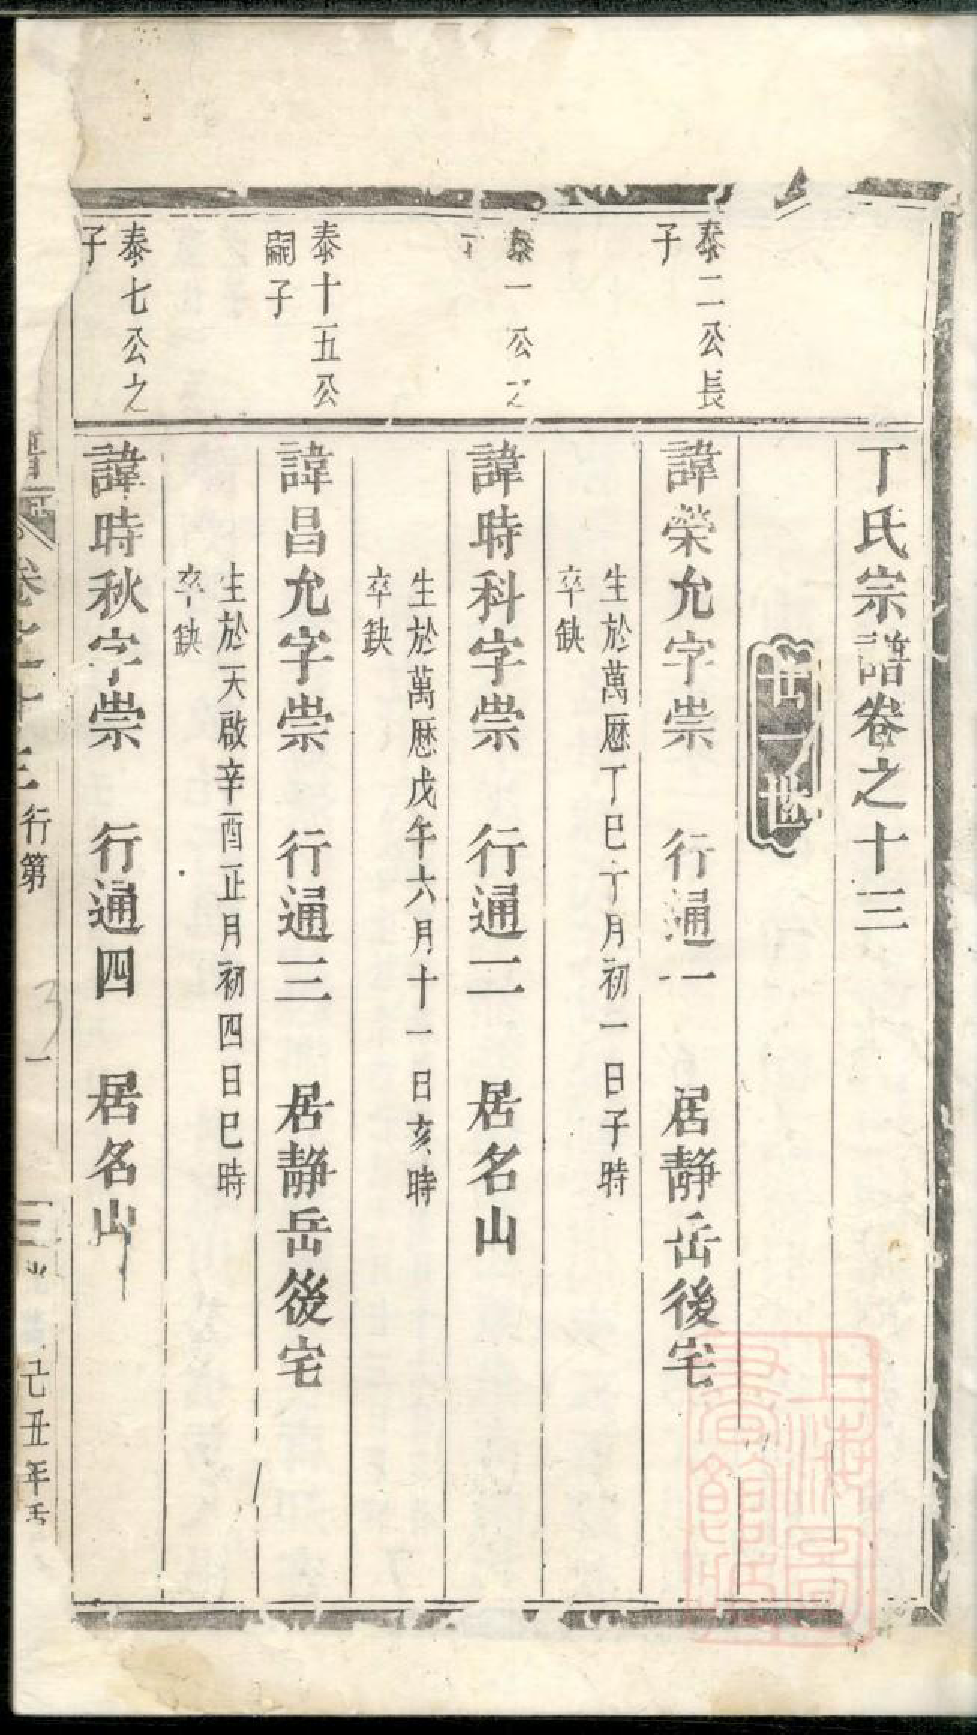 丁氏宗譜卷之十三
世一世
泰二公長
子
諱榮允字崇 行通一 居靜岳後宅
生於萬曆丁巳十月初一日子時
卒缺
泰一公之
子
諱時科字崇 行通二 居名山
生於萬曆戊午六月十一日亥時
卒缺
泰十五公
嗣子
諱昌允字崇 行通三 居靜岳後宅
生於天啟辛酉正月初四日巳時
卒缺
泰七公之
子
諱時秋字崇 行通四 居名山
卷之十三 行第
一
己丑年
上海圖
書館藏